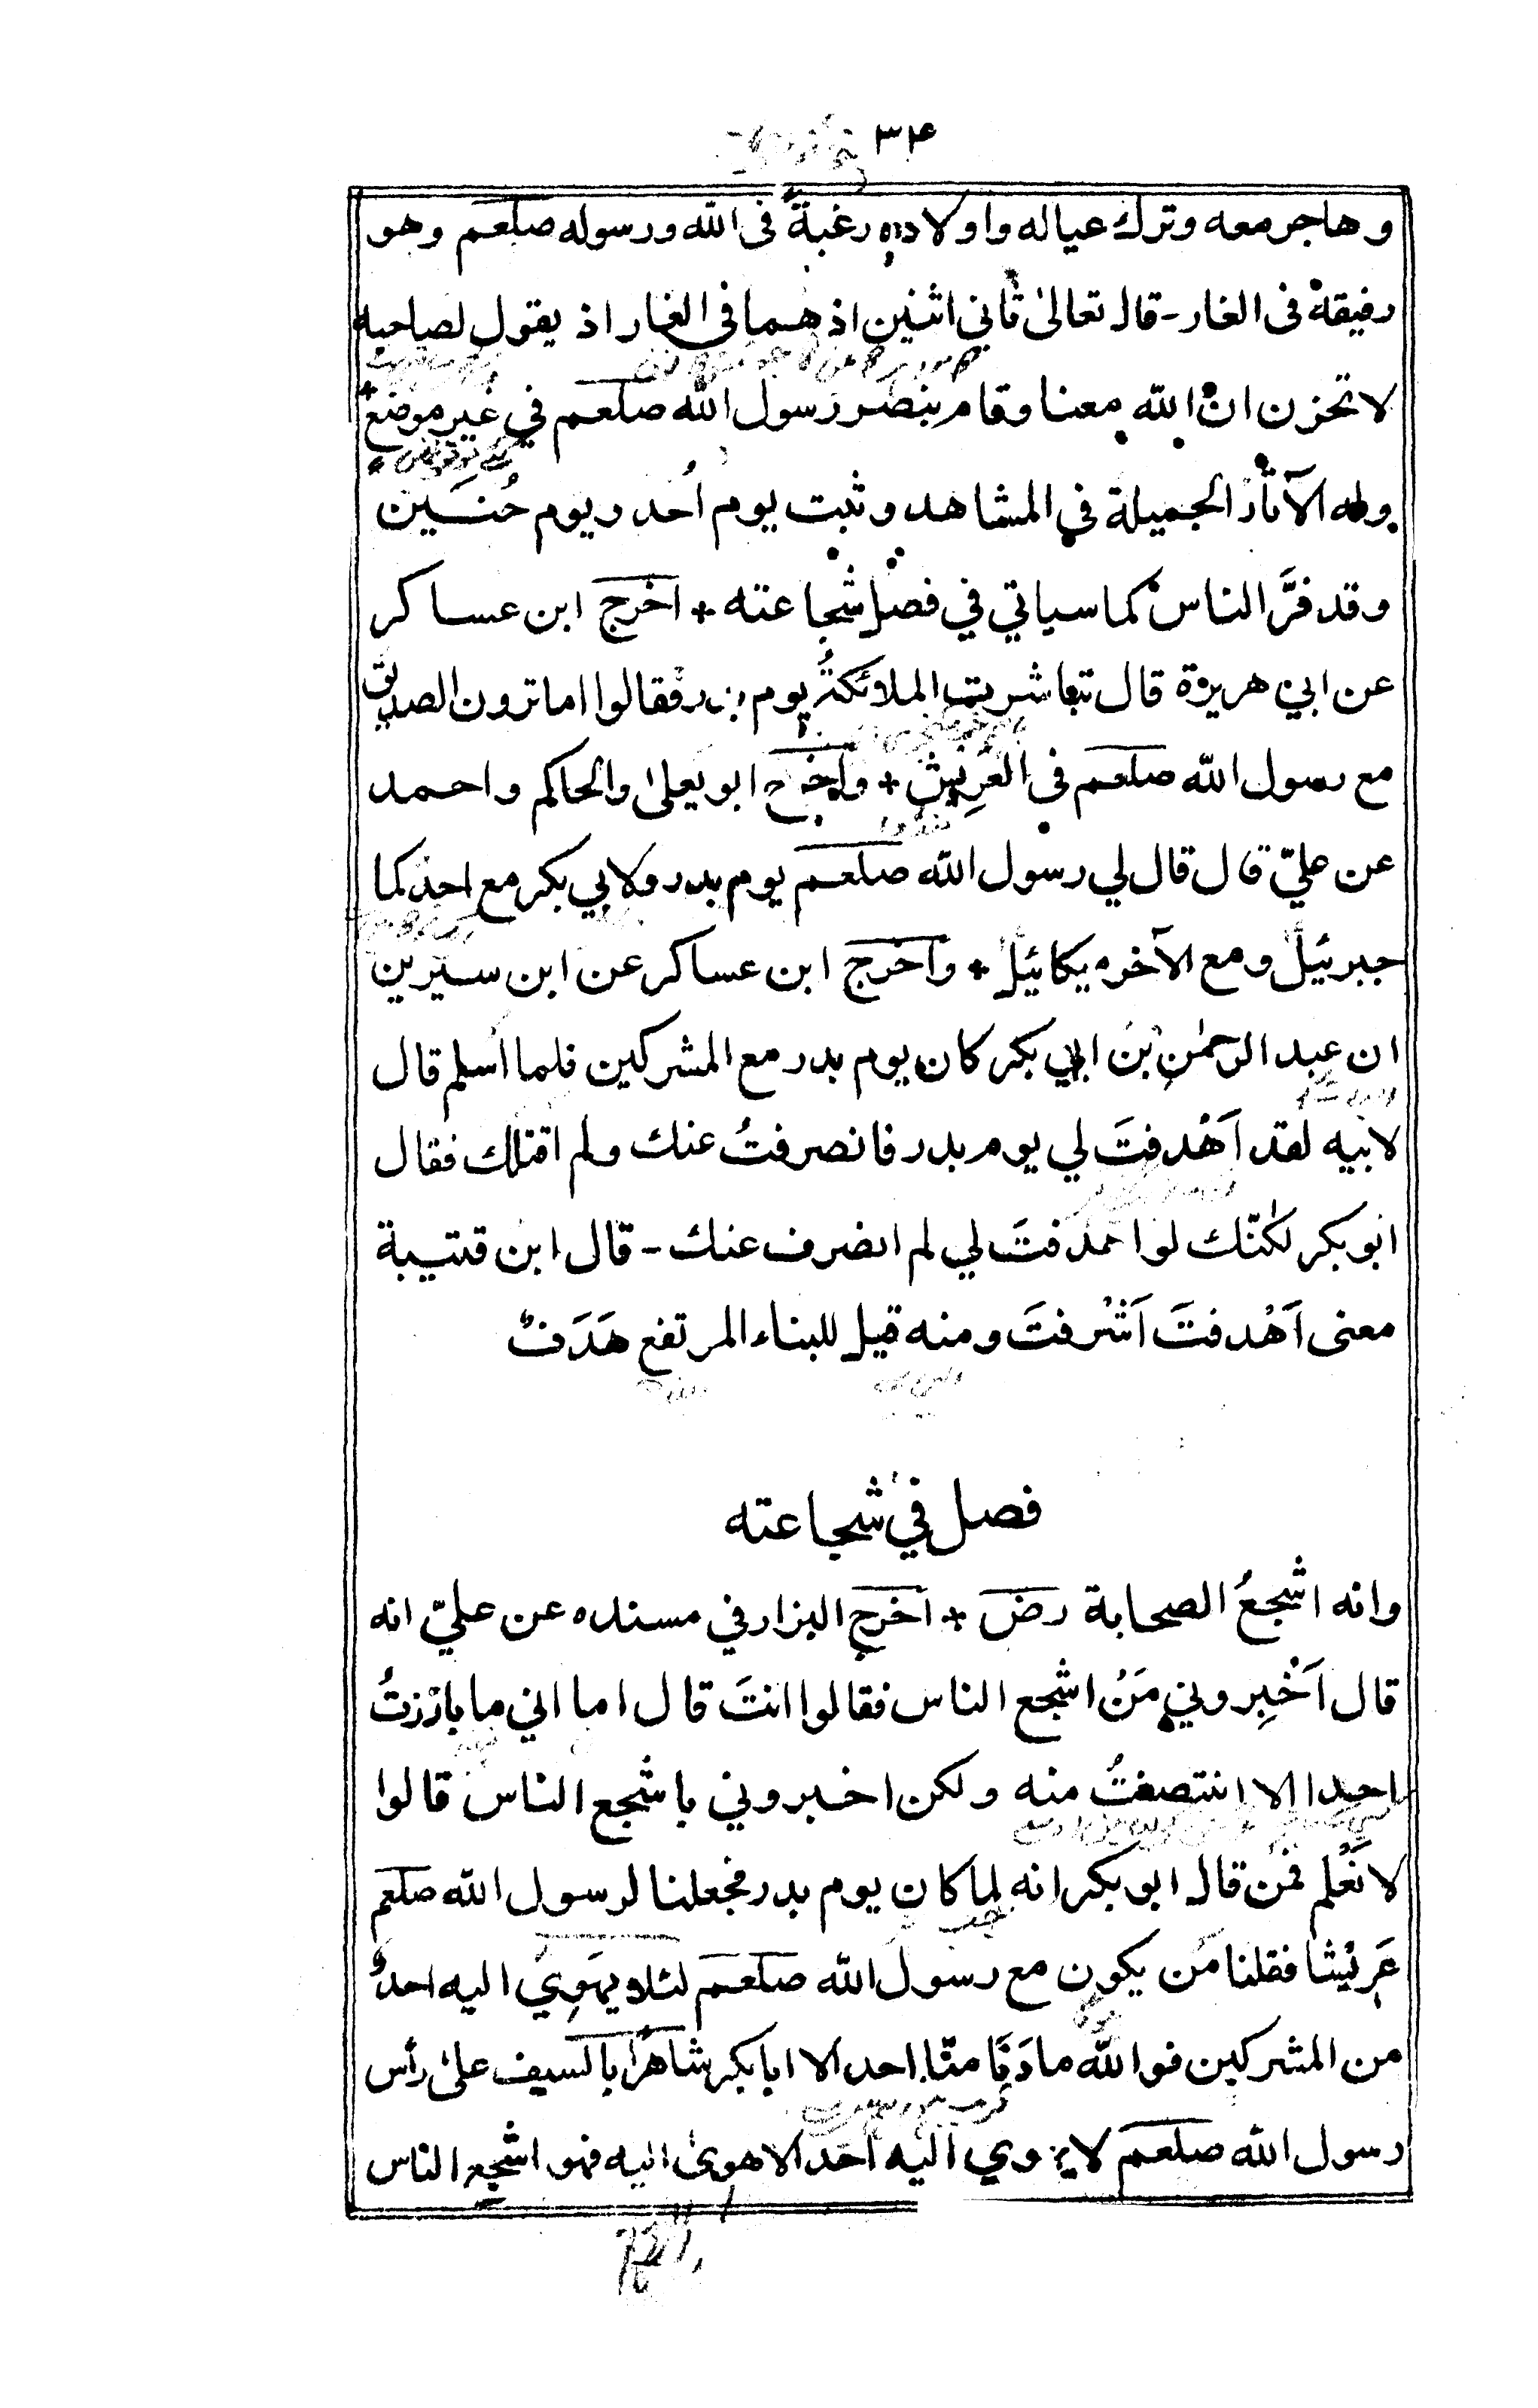 ٣٤
وهاجر معه وترك عياله واولاده رغبةً فى الله ورسوله صلعم وهو
رفيقه فى الغار - قال تعالىٰ ثاني اثنين اذ هما فى الغار اذ يقول لصاحبه
لا تحزن ان الله معنا وقام بنصر رسول الله صلعم في غير موضع
وله الآثار الجميلة في المشاهد وثبت يوم اُحد ويوم حُنَين
وقد فرَّ الناس كما سياتي في فصل شجاعته * اخرج ابن عساكر
عن ابي هريرة قال تباشرت الملائكةُ يوم بدر فقالوا اما ترون الصديق
مع رسول الله صلعم فى العَرِيش * واخرج ابو يعلىٰ والحاكم واحمد
عن عليّ قال قال لي رسول الله صلعم يوم بدر ولابي بكر مع احدكما
جبرئيل ومع الآخر ميكائيل * واخرج ابن عساكر عن ابن سيرين
ان عبد الرحمٰن بن ابي بكر كان يوم بدر مع المشركين فلما اسلم قال
لابيه لقد اَهْدفتَ لي يوم بدر فانصرفتُ عنك ولم اقتلك فقال
ابو بكر لكنّك لو اهدفتَ لي لم انصرف عنك - قال ابن قتيبة
معنى اَهْدفتَ اَشْرفتَ ومنه قيل للبناء المرتفع هَدَفٌ
فصل في شجاعته
وانه اشجعُ الصحابة رض * اخرج البزار في مسنده عن عليّ انه
قال اَخْبِروني مَنْ اشجع الناس فقالوا انتَ قال اما اني ما بارزتُ
احدا الا انتصفتُ منه ولكن اخبروني باشجع الناس قالوا
لا نَعْلم فمَن قال ابو بكر انه لما كان يوم بدر فجعلنا لرسول الله صلعم
عَرِيْشا فقلنا مَن يكون مع رسول الله صلعم لئلا يهوِي اليه احدٌ
من المشركين فوالله ما دَنَا منّا احد الا ابا بكر شاهرًا بالسيف علىٰ رأس
رسول الله صلعم لا يهوي اليه احد الا هوىٰ اليه فهو اشجع الناس